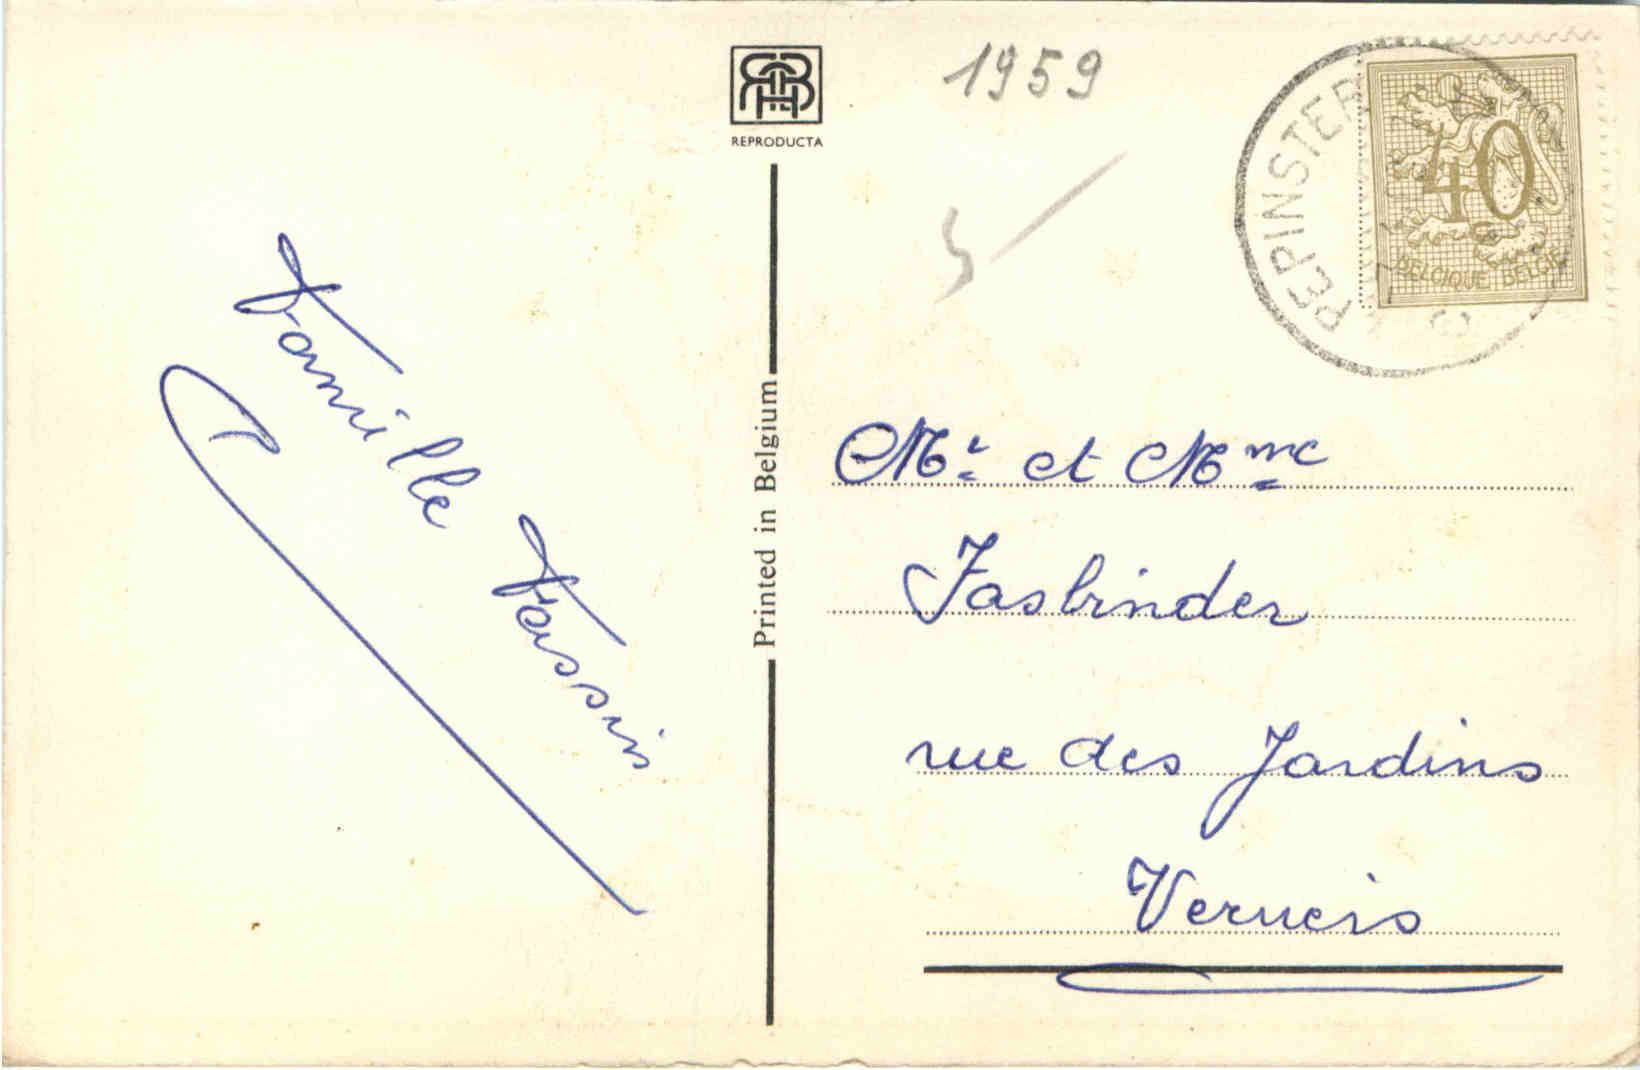 REPRODUCTA
1959
PEPINSTER
40
BELGIQUE BELGIË
Famille Fassin
Printed in Belgium
Mr et Mme
Fasbinder
rue des Jardins
Verviers